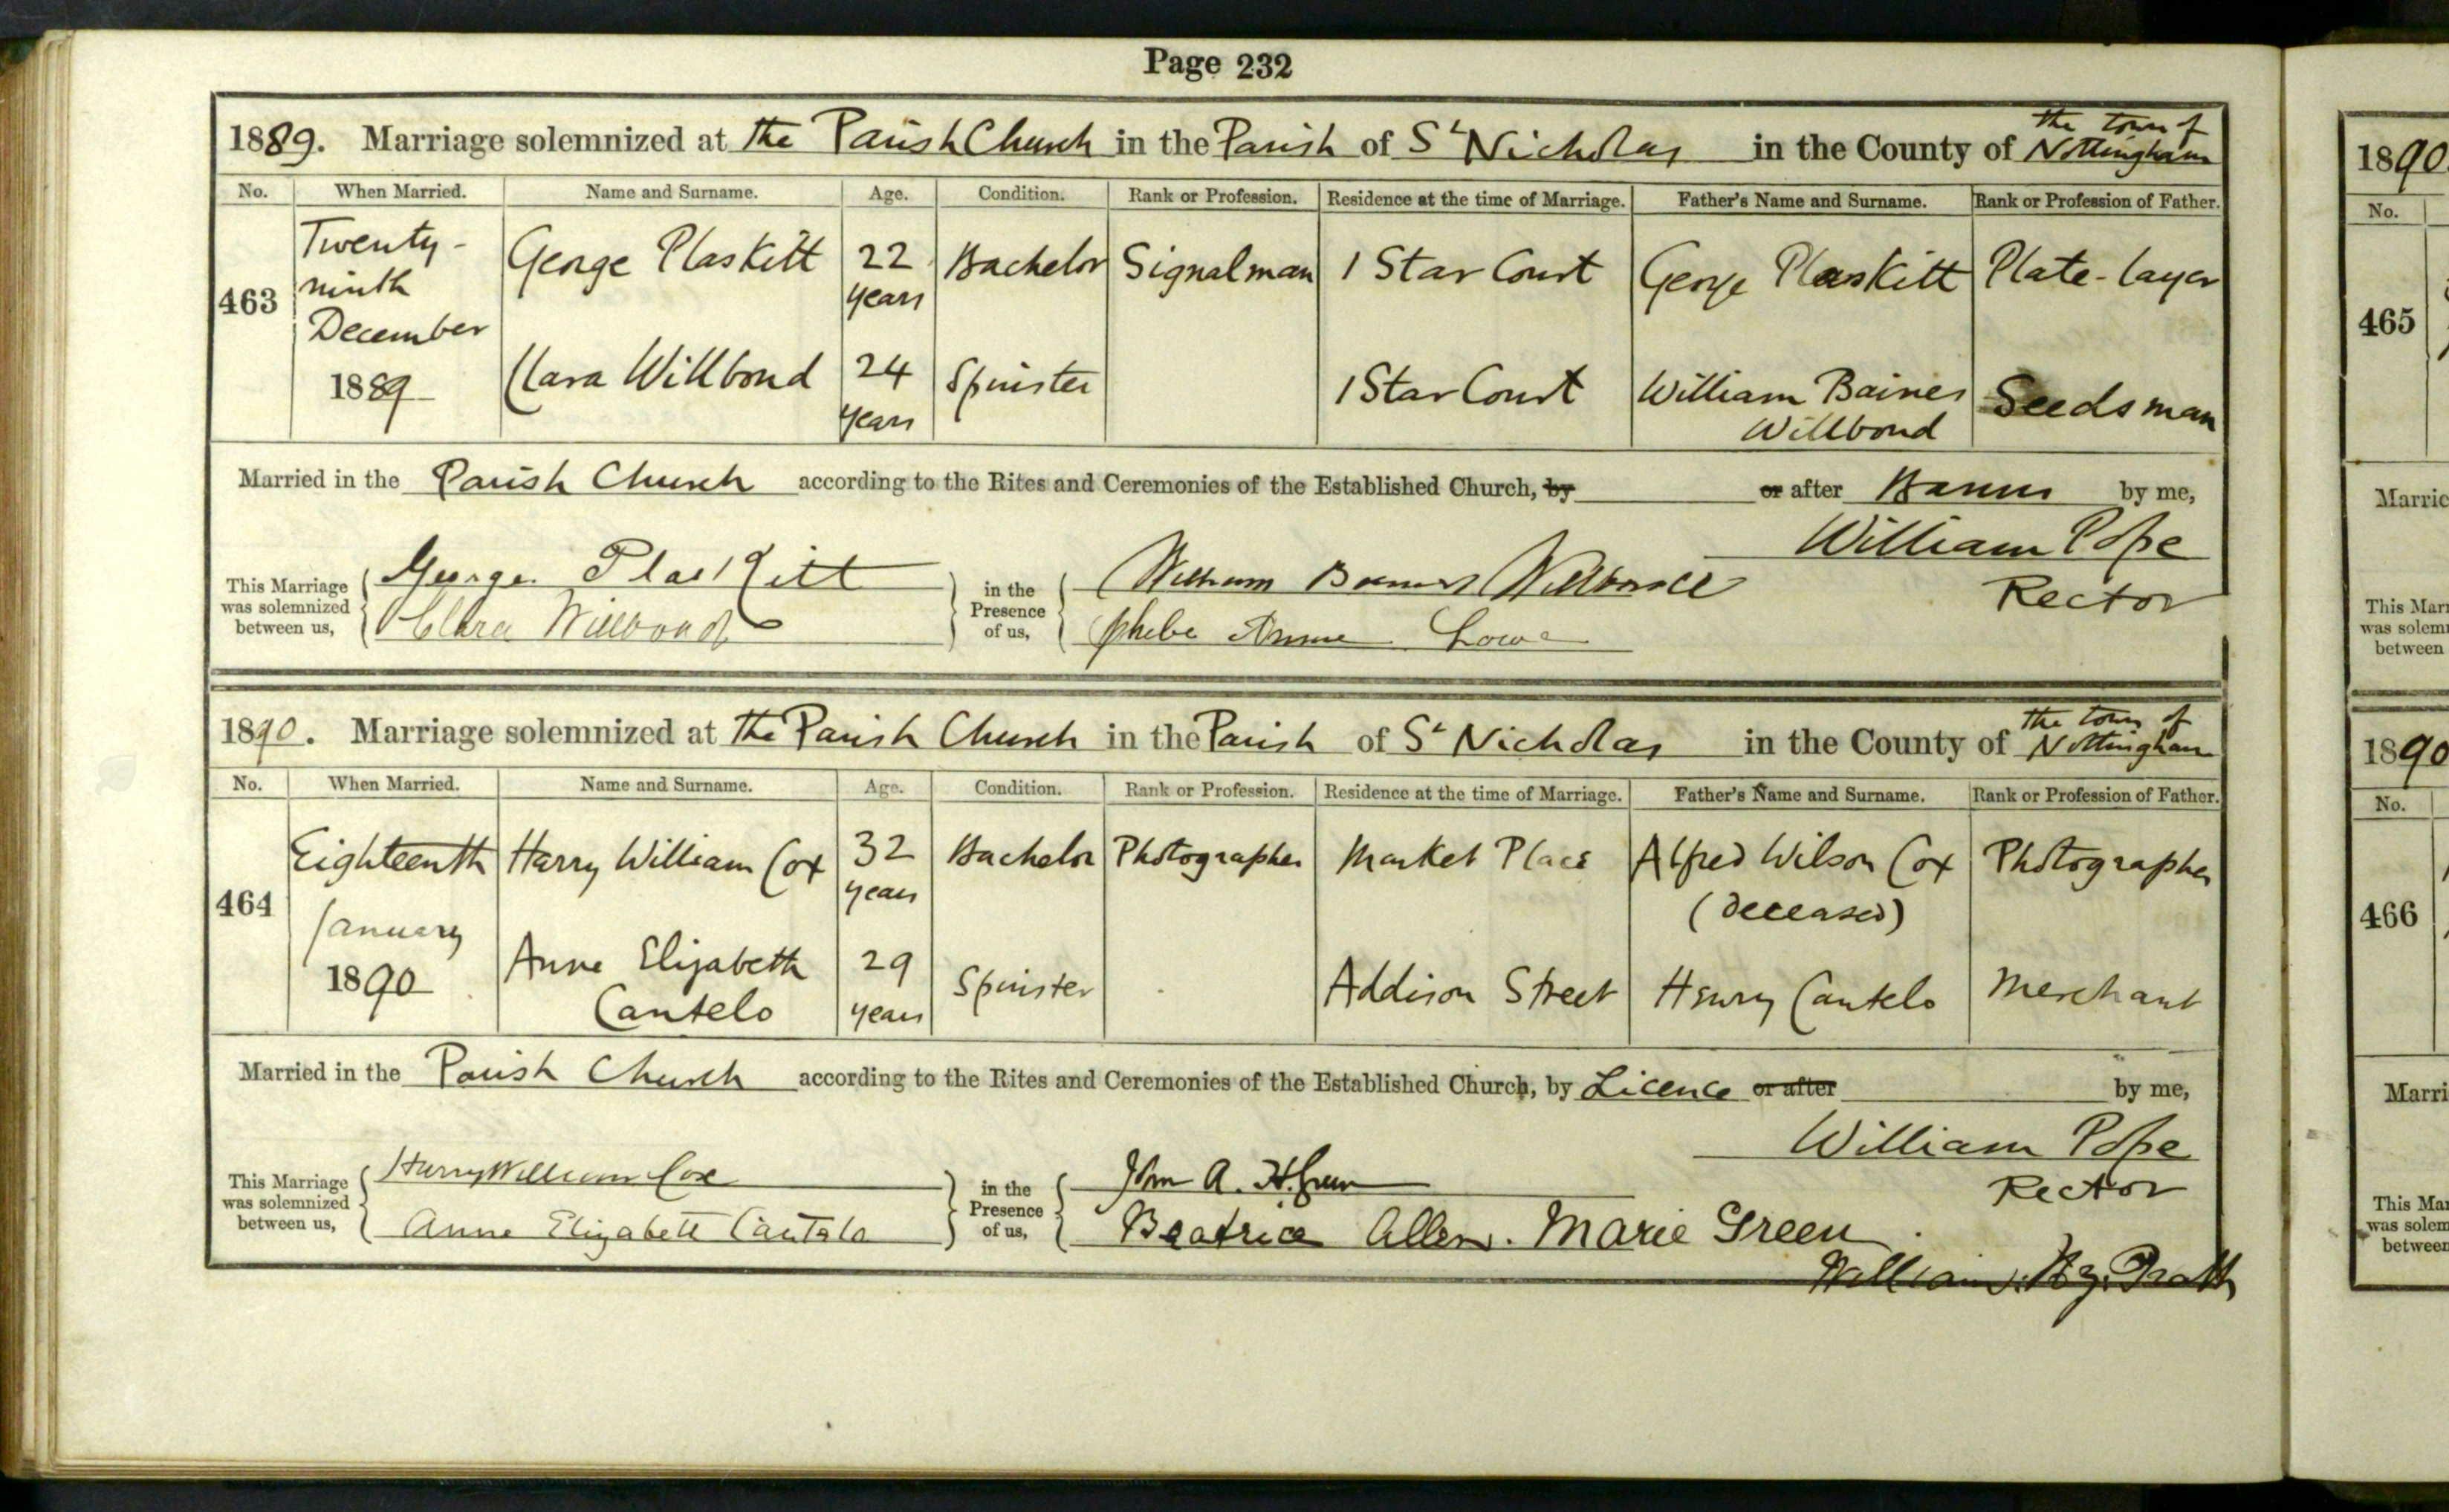 Page 232
1889. Marriage solemnized at the Parish Church in the Parish of St Nicholas in the County of the town of Nottingham
No. When Married. Name and Surname. Age. Condition. Rank or Profession. Residence at the time of Marriage. Father's Name and Surname. Rank or Profession of Father.
463 Twenty-ninth December 1889 George Plaskitt 22 years Bachelor Signalman 1 Star Court George Plaskitt Plate-layer
Clara Willbond 24 years Spinster 1 Star Court William Baines Willbond Seedsman
Married in the Parish Church according to the Rites and Ceremonies of the Established Church, by or after Banns by me,
William Pope
Rector
This Marriage was solemnized between us, George Plaskitt
Clara Willbond
in the Presence of us, William Baines Willbond
Phebe Annie Lowe
1890. Marriage solemnized at the Parish Church in the Parish of St Nicholas in the County of the town of Nottingham
No. When Married. Name and Surname. Age. Condition. Rank or Profession. Residence at the time of Marriage. Father's Name and Surname. Rank or Profession of Father.
464 Eighteenth January 1890 Harry William Cox 32 years Bachelor Photographer Market Place Alfred Wilson Cox (deceased) Photographer
Anne Elizabeth Cantelo 29 years Spinster Addison Street Henry Cantelo Merchant
Married in the Parish Church according to the Rites and Ceremonies of the Established Church, by Licence or after by me,
William Pope
Rector
This Marriage was solemnized between us, Harry William Cox
Anne Elizabeth Cantelo
in the Presence of us, John A. H. Green
Beatrice Allen. Marie Green
William. Hy. Pratt
1890
No.
465
Marrie
This Mar
was solem
between
1890
No.
466
Marri
This Mar
was solem
between